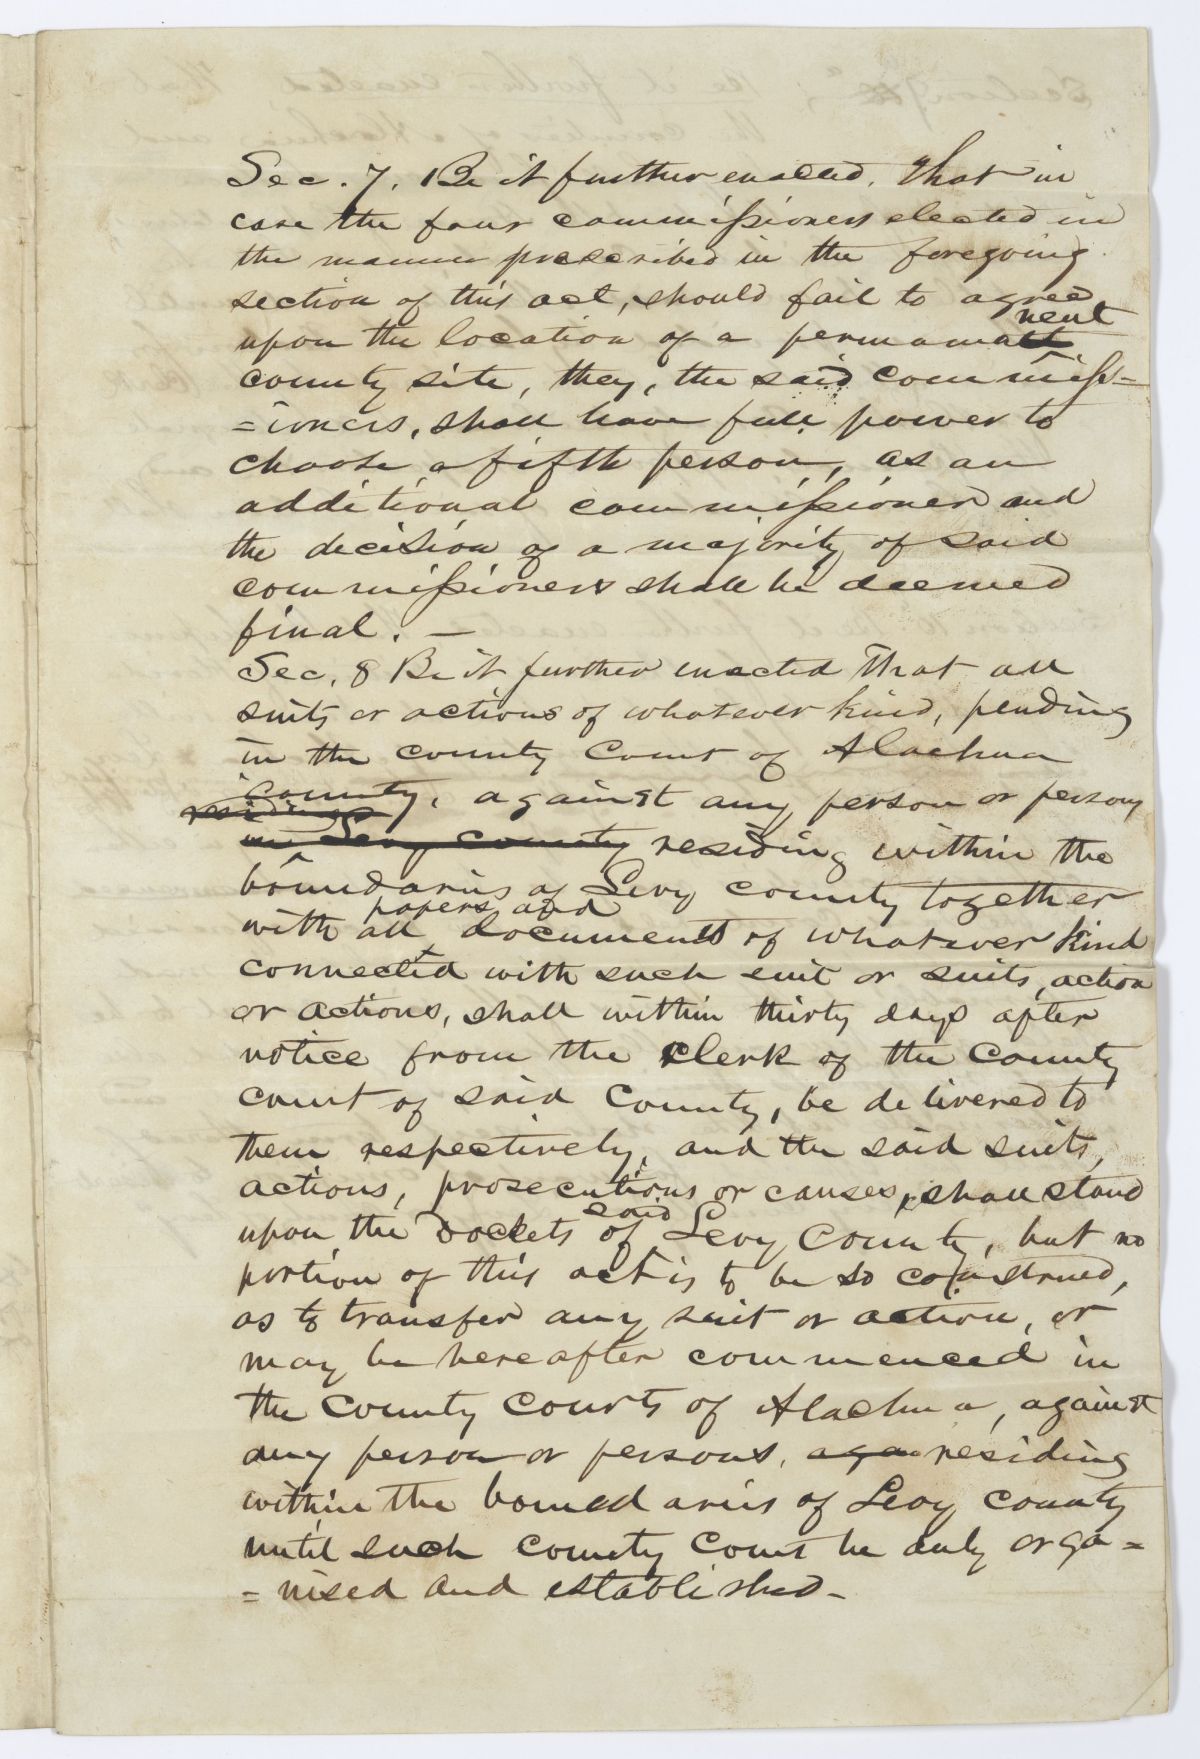 Sec. 7. Be it further enacted, That in
case the four commissioners elected in
the manner prescribed in the foregoing
section of this act, should fail to agree
upon the location of a permama nent
county site, they, the said commiss=
=ioners, shall have full power to
choose a fifth person, as an
additional commissioner and
the decision of a majority of said
commissioners shall be deemed
final. —
Sec. 8 Be it further enacted That all
suits or actions of whatever kind, pending
in the county Court of Alachua
County, against any person or persons
residing
in Levy county residing within the
boundaries of Levy county together
papers and
with all documents of whatever kind
connected with such suit or suits, action
or actions, shall within thirty days after
notice from the Clerk of the County
court of said County, be delivered to
them respectively, and the said suits,
actions, prosecutions or causes, shall stand
said
upon the Dockets of Levy County, but no
portion of this act is to be so construed,
as to transfer any suit or action, or
may be hereafter commenced in
the County Courts of Alachua, against
any person or persons, aga residing
within the boundaries of Levy county
until such county Court be duly orga=
=nised and established—